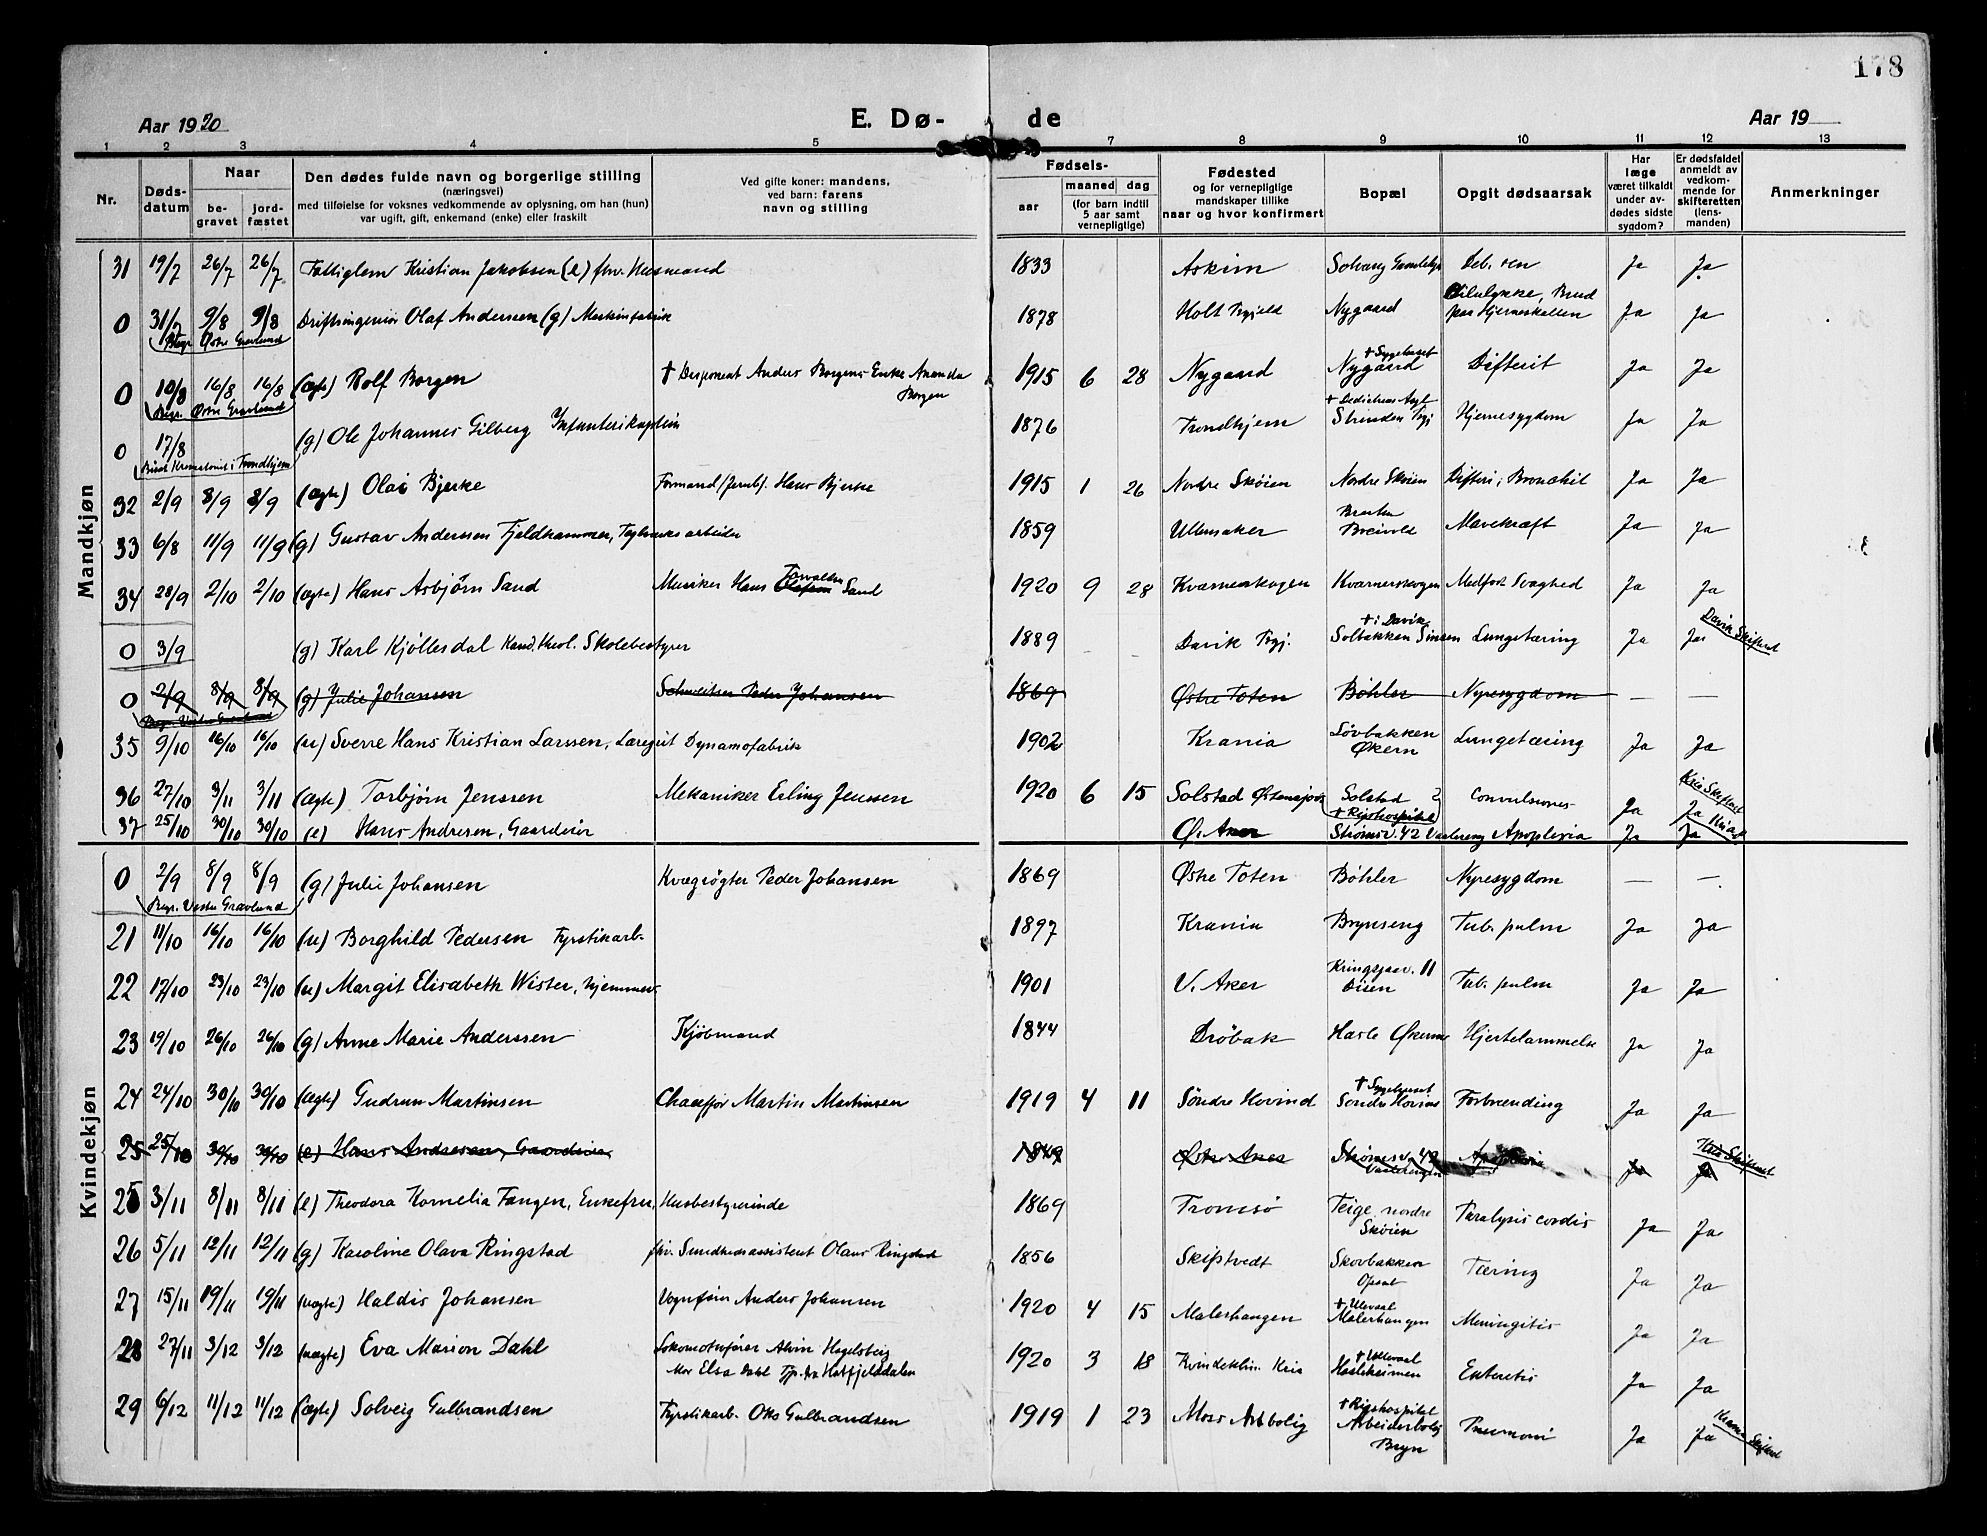 178
Aar 1920
E. Dø-
de
Aar 19
1 2 3 4 5 7 8 9 10 11 12 13
Nr.
Døds-
datum
Naar
be-
gravet
jord-
fæstet
Den dødes fulde navn og borgerlige stilling
(næringsvei)
med tilføielse for voksnes vedkommende av oplysning, om han (hun)
var ugift, gift, enkemand (enke) eller fraskilt
Ved gifte koner: mandens,
ved barn: farens
navn og stilling
Fødsels-
aar
maaned
dag
(for barn indtil
5 aar samt
vernepligtige)
Fødested
og for vernepligtige
mandskaper tillike
naar og hvor konfirmert
Bopæl
Opgit dødsaarsak
Har
læge
været tilkaldt
under av-
dødes sidste
sygdom?
Er dødsfaldet
anmeldt av
vedkom-
mende for
skifteretten
(lens-
manden)
Anmerkninger
Mandkjøn
31 19/7 26/7 26/7 Fattiglem Kristian Jakobsen (e) fhv. Husmand 1833 Askim Solvang Ja Ja
0 31/7 9/8 9/8 Driftsingeniør Olaf Andersen (g) 1878 Holt Nygaard Bilulykke, Brud
paa Hjerneskallen Ja Ja
Begr. Østre Gravlund
0 10/8 16/8 16/8 (ægte) Rolf Borgen † Disponent Anders Borgens Enke Amanda
Borgen 1915 6 28 Nygaard † Sygehuset
Nygaard Difterit Ja Ja
Begr. Østre Gravlund
0 17/8 (g) Ole Johannes Gilberg Infanterikaptein 1876 Trondhjem † Dedichens Asyl
Strinden Prgj Hjernesygdom Ja Ja
Krematoriet i Trondhjem
32 2/9 8/9 8/9 (ægte) Olai Bjerke Formand (Jernb). Hans Bjerke 1915 1 26 Nordre Skøien Nordre Skøien Difteri; Bronchit Ja Ja
33 6/8 11/9 11/9 (g) Gustav Anderssen Fjeldhammer, Teglverksarbeider 1859 Ullensaker Breivold Mavekræft Ja Ja
34 28/9 2/10 2/10 (ægte) Hans Asbjørn Sand Musiker Hans Sand 1920 9 28 Kværnerskogen Kværnerskogen Medfødt Svaghed Ja Ja
0 3/9 (g) Karl Kjøllesdal Kand. theol. Skolebestyrer 1889 Davik Prgj. † i Davik
Solbakken Sinsen Lungetæring Ja Ja Davik Skifteret
0 2/9 8/9 8/9 (g) Julie Johansen Schweitser Peder Johansen 1869 Østre Toten Bøhler Nyresygdom — —
Begr. Vestre Gravlund
35 9/10 16/10 16/10 (u) Sverre Hans Kristian Larssen, Læregut Dynamofabrik 1902 Krania Løvbakken
Økern Lungetæring Ja Ja
36 27/10 3/11 3/11 (ægte) Torbjørn Jenssen Mekaniker Erling Jenssen 1920 6 15 Solstad Østensjøv. Solstad
† Rigshospitalet Convulsiones Ja Ja Kria Skifteret
37 25/10 30/10 30/10 (e) Hans Andresen, Gaardeier Ø. Aker Strømsv. 42 Vaalereng Apoplexia Ja Ja
Kvindekjøn
0 2/9 8/9 8/9 (g) Julie Johansen Kvægrøgter Peder Johansen 1869 Østre Toten Bøhler Nyresygdom — —
Begr. Vestre Gravlund
21 11/10 16/10 16/10 (u) Borghild Pedersen Fyrstikarb. 1897 Krania Brynseng Tub. pulm Ja Ja
22 17/10 23/10 23/10 (u) Margit Elisabeth Wister, hjemmev. 1901 V. Aker Kringsjaav. 11
Disen Tub. pulm Ja Ja
23 19/10 26/10 26/10 (g) Anne Marie Anderssen Kjøbmand 1844 Drøbak Hasle Økernv Hjertelammelse Ja Ja
24 24/10 30/10 30/10 (ægte) Gudrun Martinsen Chauffør Martin Martinsen 1919 4 11 Søndre Hovind † Sygehuset
Søndre Hovind Forbrænding Ja Ja
25 25/10 30/10 30/10 (e) Hans Andresen, Gaardeier 1849 Østre Aker Strømsv. 42
Vaalerengen Apoplexia Ja Ja Kria Skifteret
25 3/11 8/11 8/11 (e) Theodora Kornelia Fangen, Enkefru, Husbestyrerinde 1869 Tromsø Teige nordre
Skøien Paralysis cordis Ja Ja
26 5/11 12/11 12/11 (g) Karoline Olava Ringstad fhv. Sundhedsassistent Olaus Ringstad 1856 Skiptvedt Skovbakken
Opsal Tæring Ja Ja
27 15/11 19/11 19/11 (uægte) Haldis Johansen Vognfører Anders Johansen 1920 4 15 Malerhaugen † Ullevaal
Malerhaugen Meningitis Ja Ja
28 27/11 3/12 3/12 (uægte) Eva Marion Dahl Lokomotivfører Alvin Hagelsteig
Mor Elsa Dahl Tjp. fra Hatfjelddalen 1920 3 18 Kvindeklin. Kria † Ullevaal
Hasleheimen Enteritis Ja Ja
29 6/12 11/12 11/12 (ægte) Solveig Gulbrandsen Fyrstikarb. Oks Gulbrandsen 1919 1 23 Moss Arbbolig † Rigshospitalet
Arbeiderbolig
Bryn Pneumoni Ja Ja Krania Skifteret